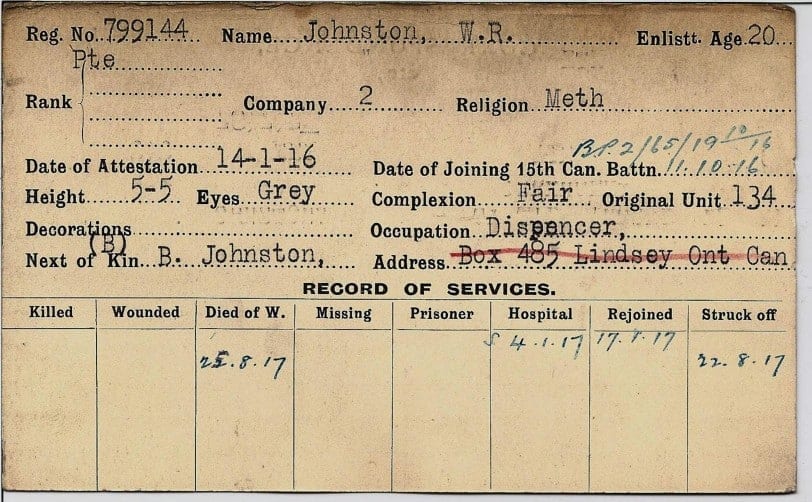 Reg. No. 799144 Name Johnston, W.R. Enlistt. Age 20
Pte
Rank Company 2 Religion Meth
B.P. 2/65/19 10/16
Date of Attestation 14-1-16 Date of Joining 15th Can. Battn. 11.10.16
Height 5-5 Eyes Grey Complexion Fair Original Unit 134
Decorations Occupation Dispencer,
(B)
Next of Kin B. Johnston, Address Box 485 Lindsey Ont Can
RECORD OF SERVICES.
Killed Wounded Died of W. Missing Prisoner Hospital Rejoined Struck off
S 4.1.17 17.1.17
22.8.17